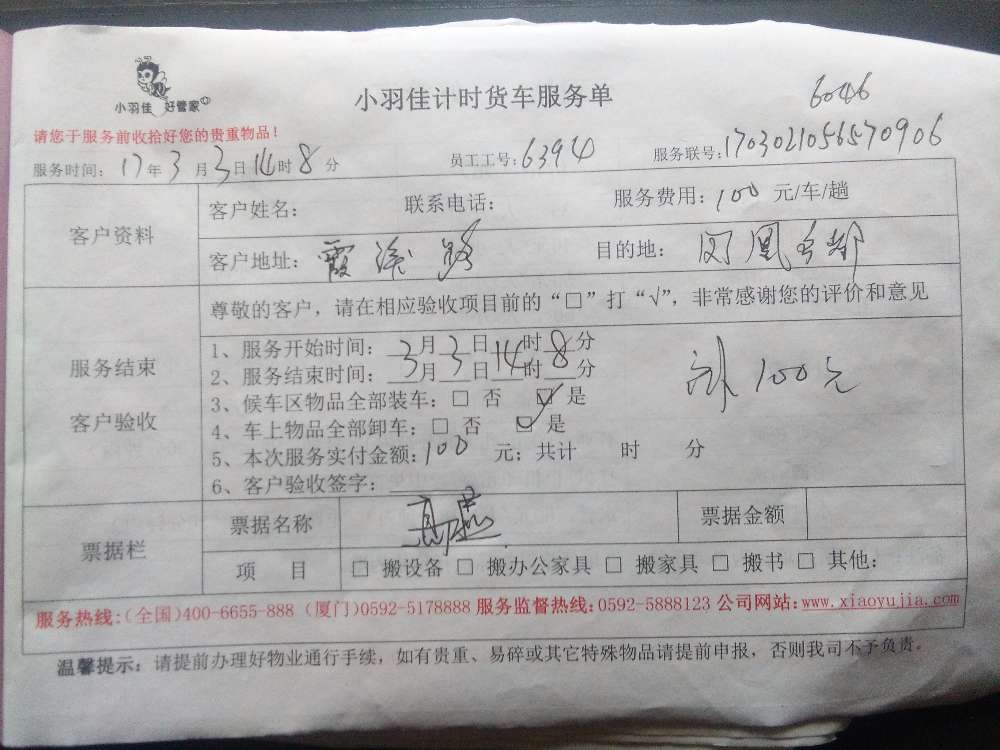 小羽佳 好管家
小羽佳计时货车服务单
6046
请您于服务前收拾好您的贵重物品！
服务时间：17年3月3日14时8分 员工工号：6394 服务联号：1703021056570906
客户资料
客户姓名： 联系电话： 服务费用：100元/车/趟
客户地址：霞溪路 目的地：凤凰台都
服务结束
客户验收
尊敬的客户，请在相应验收项目前的“□”打“√”，非常感谢您的评价和意见
1、服务开始时间：3月3日14时8分
2、服务结束时间：3月3日14时8分
3、候车区物品全部装车：□ 否 ☑ 是
4、车上物品全部卸车：□ 否 ☑ 是
100元
5、本次服务实付金额：100 元；共计 时 分
6、客户验收签字：
票据栏
票据名称 票据金额
项 目 □ 搬设备 □ 搬办公家具 □ 搬家具 □ 搬书 □ 其他：
服务热线：(全国)400-6655-888 (厦门)0592-5178888 服务监督热线：0592-5888123 公司网站：www.xiaoyujia.com
温馨提示：请提前办理好物业通行手续，如有贵重、易碎或其它特殊物品请提前申报，否则我司不予负责。